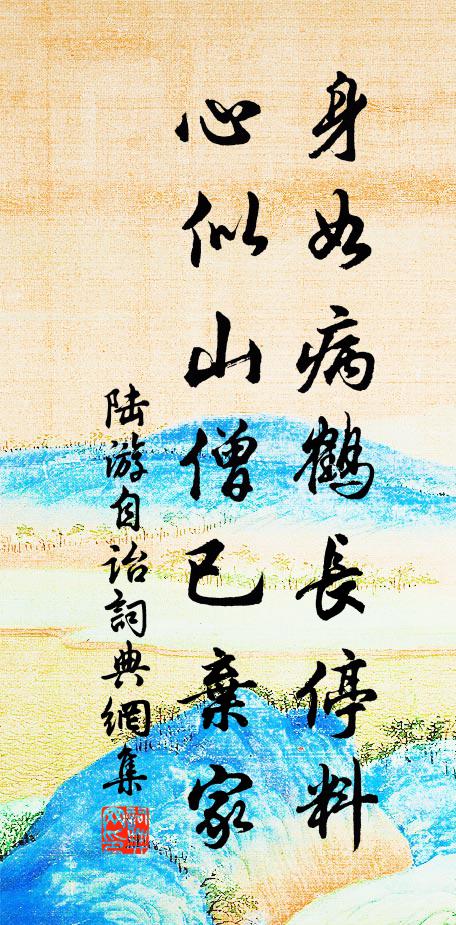 身如病鶴長停料
心似山僧已棄家
陸游自詒詞典網集